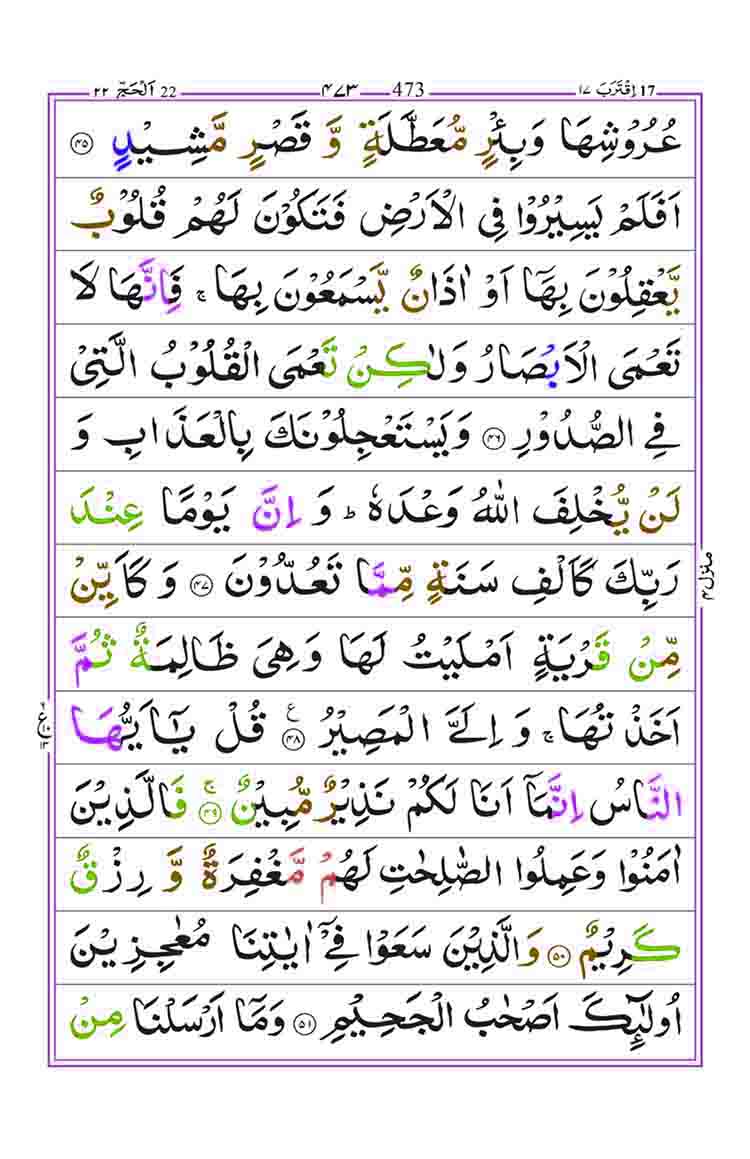 اِقْتَرَبَ ١٧ 17 473 ٤٧٣ اَلْحَجّ ٢٢ 22
عُرُوْشِهَا وَبِئْرٍ مُّعَطَّلَةٍ وَّ قَصْرٍ مَّشِيْدٍ ﴿٤٥﴾
اَفَلَمْ يَسِيْرُوْا فِى الْاَرْضِ فَتَكُوْنَ لَهُمْ قُلُوْبٌ
يَّعْقِلُوْنَ بِهَاۤ اَوْ اٰذَانٌ يَّسْمَعُوْنَ بِهَا ۚ فَاِنَّهَا لَا
تَعْمَى الْاَبْصَارُ وَلٰكِنْ تَعْمَى الْقُلُوْبُ الَّتِىْ
فِى الصُّدُوْرِ ﴿٤٦﴾ وَيَسْتَعْجِلُوْنَكَ بِالْعَذَابِ وَ
لَنْ يُّخْلِفَ اللّٰهُ وَعْدَهٗ ؕ وَ اِنَّ يَوْمًا عِنْدَ
رَبِّكَ كَاَلْفِ سَنَةٍ مِّمَّا تَعُدُّوْنَ ﴿٤٧﴾ وَ كَاَيِّنْ
مِّنْ قَرْيَةٍ اَمْلَيْتُ لَهَا وَهِىَ ظَالِمَةٌ ثُمَّ
اَخَذْتُهَا ۚ وَ اِلَىَّ الْمَصِيْرُ ﴿٤٨﴾ ع قُلْ يٰۤاَيُّهَا
النَّاسُ اِنَّمَاۤ اَنَا لَكُمْ نَذِيْرٌ مُّبِيْنٌ ﴿٤٩﴾ ۚ فَالَّذِيْنَ
اٰمَنُوْا وَعَمِلُوا الصّٰلِحٰتِ لَهُمْ مَّغْفِرَةٌ وَّ رِزْقٌ
كَرِيْمٌ ﴿٥٠﴾ وَالَّذِيْنَ سَعَوْا فِىْۤ اٰيٰتِنَا مُعٰجِزِيْنَ
اُولٰٓئِكَ اَصْحٰبُ الْجَحِيْمِ ﴿٥١﴾ وَمَاۤ اَرْسَلْنَا مِنْ
منزل ٤